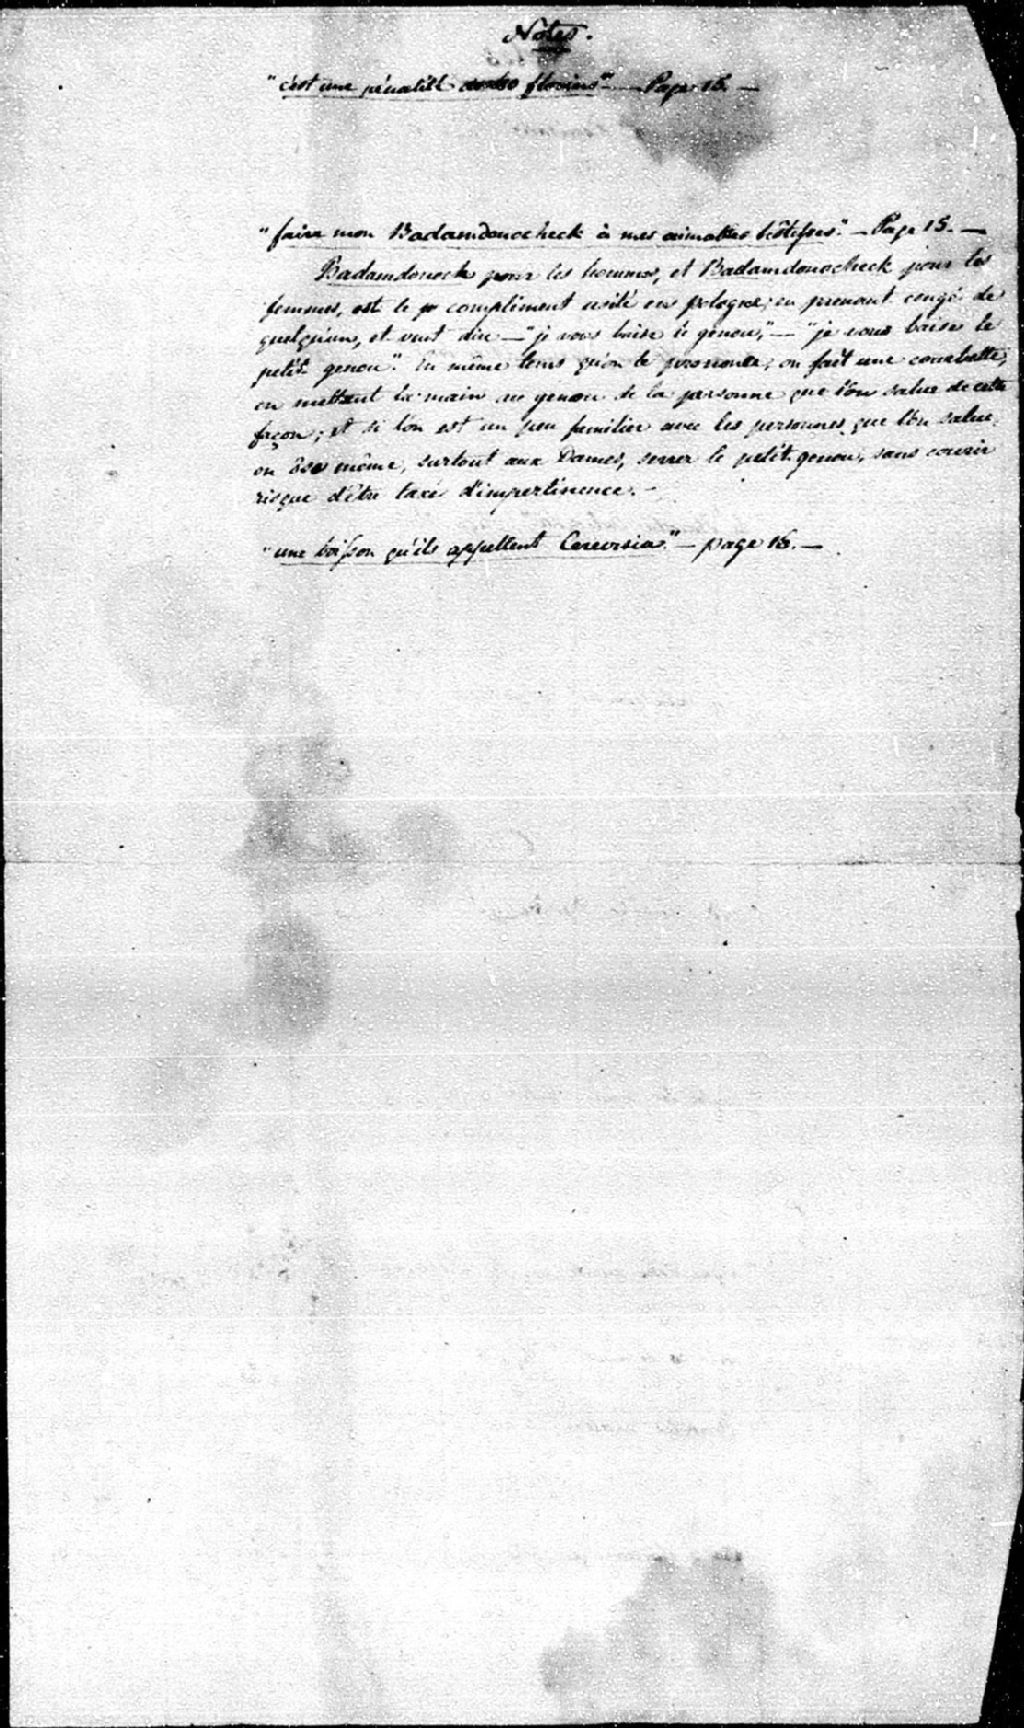 Nôtes.
"c'est une pénalité contre florins" — Page 15. —
"faire mon Badamdonocheck à mes aimables hôtesses." — Page 15. —
Badamdonock pour les hommes, et Badamdonocheck pour les
femmes, est le compliment usité en pologne, en prenant congé de
quelqu'un, et veut dire — "je vous baise le genou," — "je vous baise le
petit genou." En même tems qu'on le prononce, on fait une courbette,
en mettant la main au genou de la personne que l'on salue de cette
façon; et si l'on est un peu familier avec les personnes que l'on salue,
on ôse même, surtout aux Dames, serrer le petit genou, sans courir
risque d'être taxé d'impertinence. —
"une boisson qu'ils appellent Cerevisia." — page 16. —